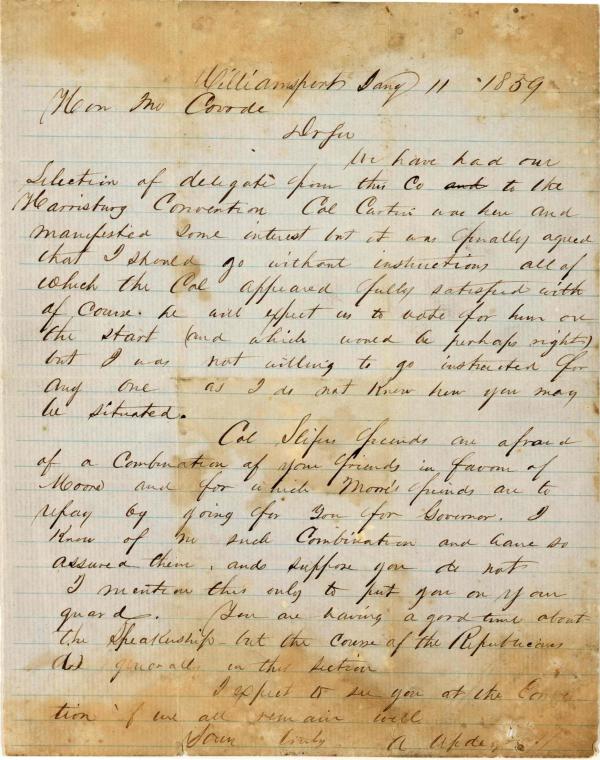 Williamsport Jany 11 1859
Hon Mr Covode
Dr Sir
We have had our
Selection of delegate from this Co and to the
Harrisburg Convention Col Curtin was here and
manifested some interest but it was finally agreed
that I should go without instructions all of
which the Col appeared fully satisfied with
of course. he will expect us to vote for him on
the start (and which would be perhaps right)
but I was not willing to go instructed for
any one as I do not know how you may
be situated.
Col Slifers friends are afraid
of a Combination of your friends in favour of
Moore and for which Moore's friends are to
repay by going for you for Governor. I
Know of no such Combination and have so
assured them, and suppose you do not
I mention this only to put you on your
guard. You are having a good time about
the Speakership but the course of the Republicans
generally in this section
I expect to see you at the Conven
tion if we all remain well
Yours truly A